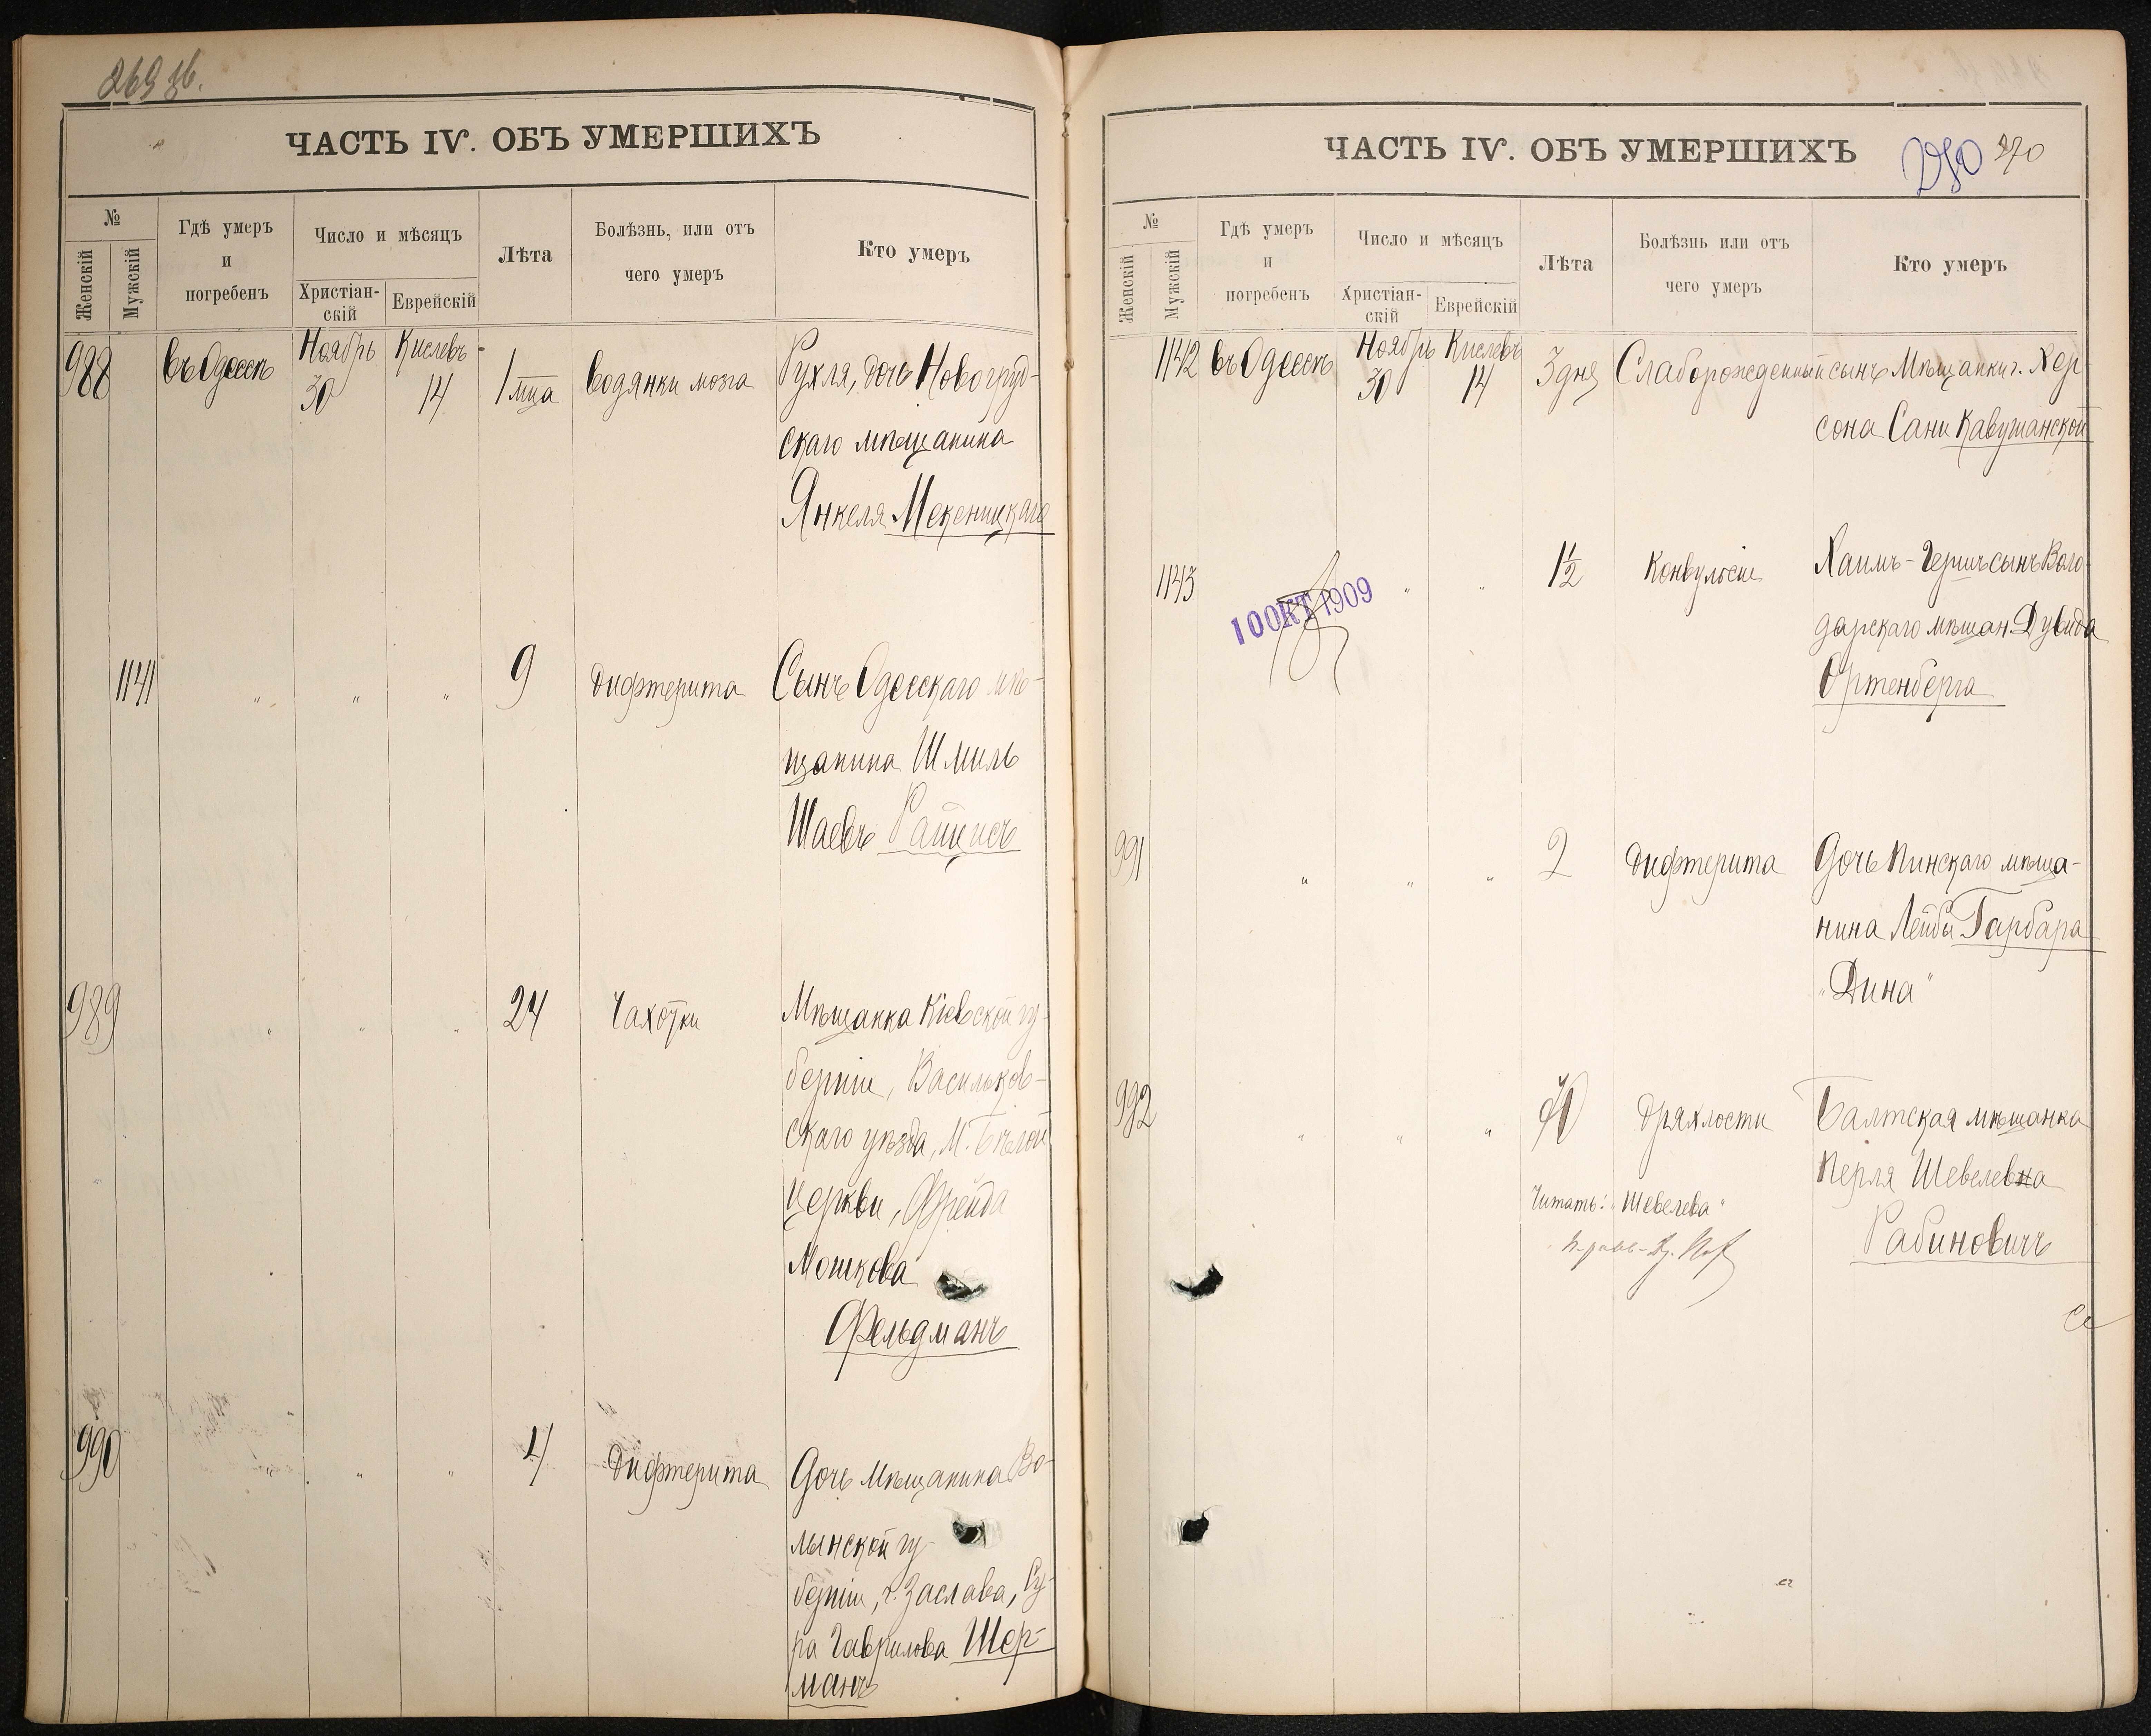 269 об.
ЧАСТЬ IV. ОБЪ УМЕРШИХЪ
№
Женскій
Мужскій
Гдѣ умеръ
и
погребенъ
Число и мѣсяцъ
Христіан-
скій
Еврейскій
Лѣта
Болѣзнь, или отъ
чего умеръ
Кто умеръ
988 въ Одессѣ Ноябрь 30 Кислевъ 14 1 мца водянки мозга Рухля, дочь Новогруд-
скаго мѣщанина
Янкеля Мекеницкаго
1141 " " " 9 дифтерита Сынъ Одесскаго мѣ-
щанина Шмиль
Шаевъ Райцисъ
989 " " " 24 Чахотки Мѣщанка Кіевской гу-
берніи, Васильков-
скаго уѣзда, М. Бѣлой
Церкви, Фрейда
Мошкова
Фельдманъ
990 " " " 4 дифтерита Дочь мѣщанина Во-
лынской гу-
берніи, г. Заслава, Су-
ра Гаврилова Шер-
манъ
ЧАСТЬ IV. ОБЪ УМЕРШИХЪ
270 270
№
Женскій
Мужскій
Гдѣ умеръ
и
погребенъ
Число и мѣсяцъ
Христіан-
скій
Еврейскій
Лѣта
Болѣзнь или отъ
чего умеръ
Кто умеръ
1142 въ Одессѣ Ноябрь 30 Кислевъ 14 3 дня Слаборожденный сынъ Мѣщанки г. Хер-
сона Сани Кавушанской
1143 " " 1½ Конвульсіи Хаимъ-Гершъ сынъ Воло-
дарскаго мѣщан. Дувида
Ортенберга
10 ОКТ 1909
991 " " " 2 дифтерита Дочь Пинскаго мѣща-
нина Лейбы Гарбара
"Дина"
992 " " " 70 дряхлости Балтская мѣщанка
Перля Шевелевна
Читать: "Шевелева"
Рабиновичъ